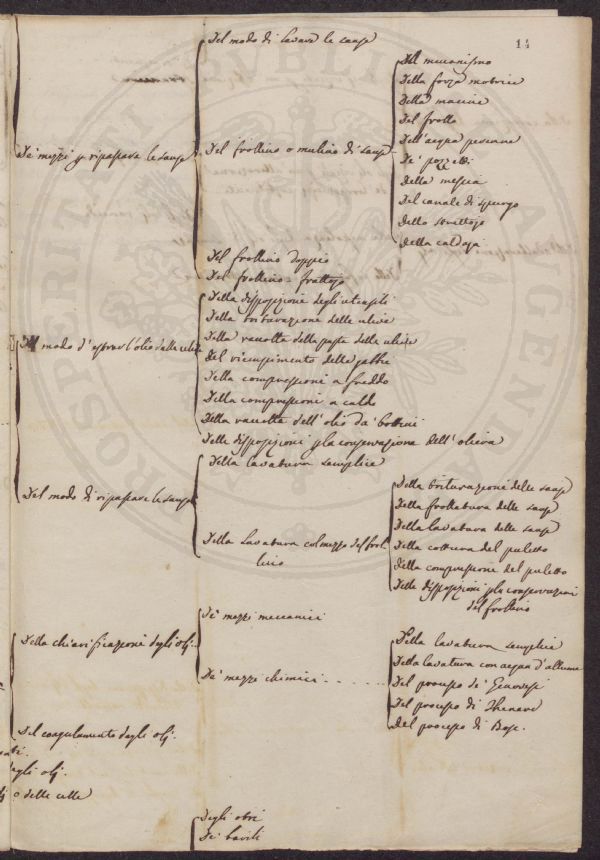 14
Del modo di lavare le sanse
De' mezzi p ripassare le sanse
Del frollino o mulino di sanse
Del meccanismo
Della forza motrice
Della macine
Del frollo
Dell'acqua perenne
De' pozzetti
Della mescia
Del canale di spurgo
Dello strettojo
Della caldaja
Del frollino doppio
Del frollino-frattojo
Del modo d'esprar l'olio dalle ulive
Della disposizione degli utensili
Della triturazione delle ulive
Della raccolta della pasta delle ulive
Del riempimento delle gabbie
Della compressione a freddo
Della compressione a caldo
Della raccolta dell'olio da' bottini
Delle disposizioni p la conservazione dell'oliera
Del modo di ripassare le sanse
Della lavatura semplice
Della Lavatura col mezzo del frol-
lino
Della triturazione delle sanse
Della frollatura delle sanse
Della lavatura delle sanse
Della cottura del puletto
Della compressione del puletto
Delle disposizioni p la conservazione
del frollino
Della chiarificazione degli olj.
De' mezzi meccanici
De' mezzi chimici
Della lavatura semplice
Della lavatura con acqua d'allume
Del processo de' Genovesi
Del processo di Thenard
Del processo di Base.
Del coagulamento degli olj.
degli olj.
o delle celle
Degli otri
De' barili